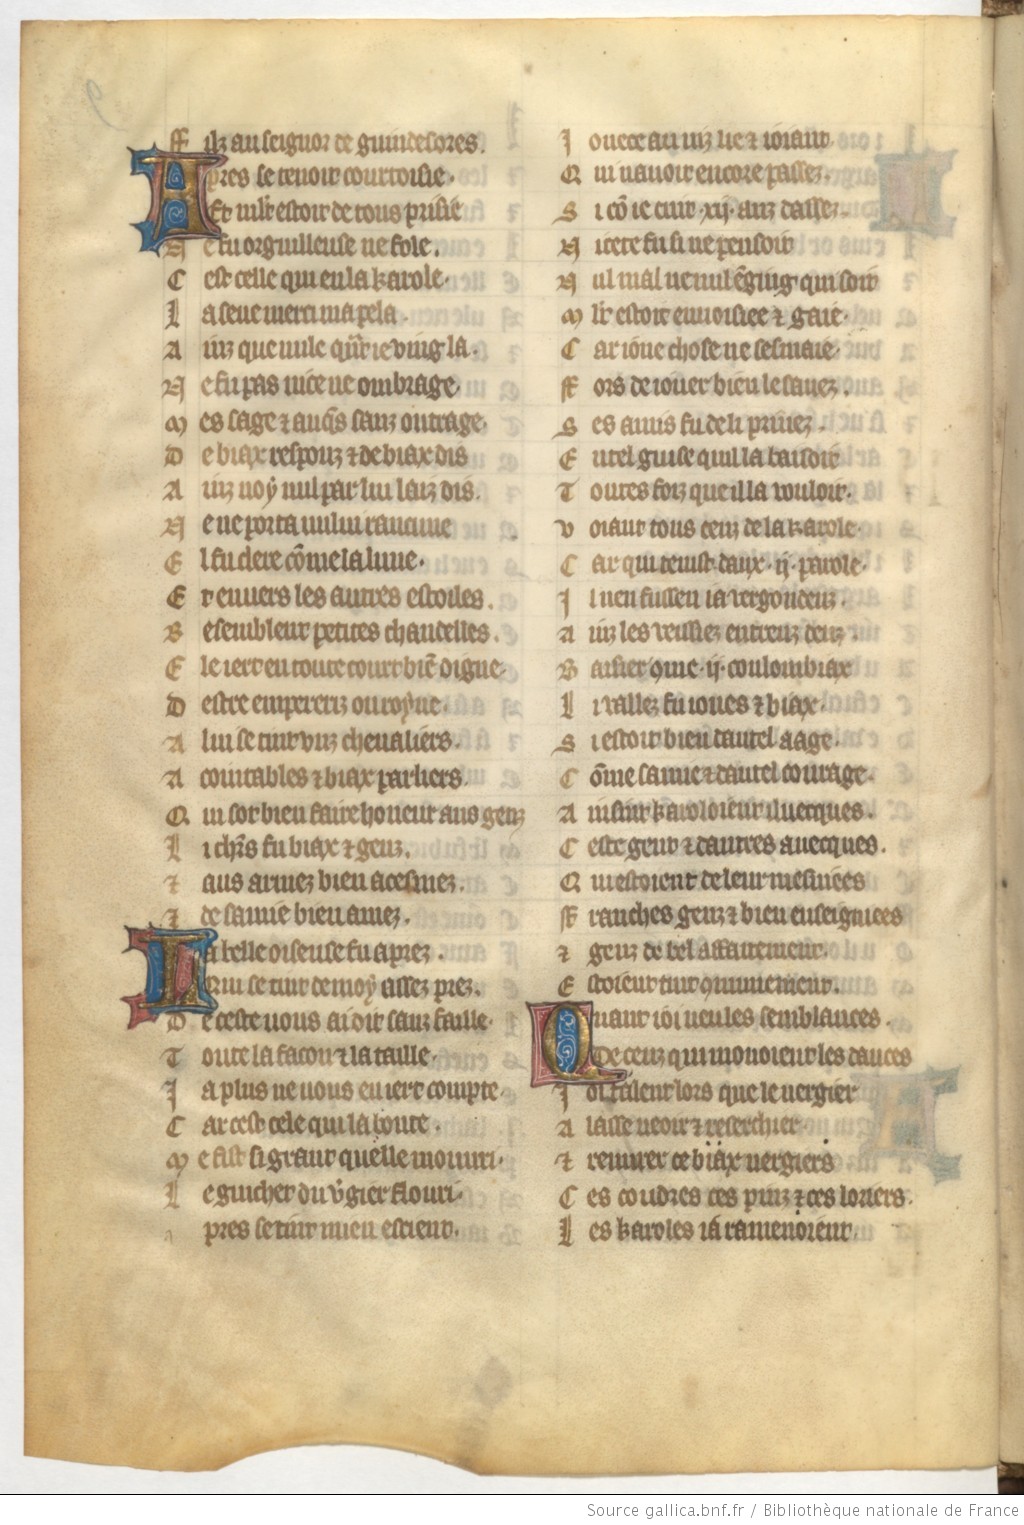 Filz au seignor de guindesores.
Apres se tenoit courtoisie.
Et mlt estoit de tous prisie
Ne fu orguilleuse ne fole.
Cest celle qui en la karole.
La seue merci mapela.
Ainz que nule qnt ie ving la.
Ne fu pas nice ne ombrage.
Mes sage & auqs sanz outrage.
De biax responz & de biax dis
Ainz noy nul par lui laiz dis.
Ne ne porta nului rancune
El fu clere cõme la lune.
Et enuers les autres estoiles.
Resembleut petites chandelles.
Ele iert en toute court biẽ digne.
Destre empereriz ou royne.
A lui se tint vnz cheualiers.
Acointables & biax parliers.
Qui sot bien faire honeur aus genz
Li chrs fu biax & genz.
& aus armez bien acesmez.
& de samie bien amez.
La belle oiseuse fu aprez.
Qui se tint de moy assez prez.
De ceste uous ai dit sanz faille.
Toute la facon & la taille.
Ia plus ne uous en iert compte.
Car cest cele qui la bonte.
Me fist si grant quelle mouuri.
Le guichet du vgier flouri.
Apres se tint mien escient.
Ionece au uiz lie & ioiant.
Qui nauoit encore passez.
Si cõ ie cuit .xij. anz dassez.
Nicete fu si ne pensoit
Nul mal ne nul enging qui soit
Mlt estoit enuoisiee & gaie.
Car ione chose ne sesmaie.
Fors de iouer bien le sauez.
Ses amis fu de li priuez.
En tel guise quil la baisoit
Toutes foiz que il la vouloit.
Voiant tous ceuz de la karole.
Car qui tenist daux .ij. parole.
Il nen fussen ia vergondeuz.
Ainz les veissiez entreuz deuz.
Baisier 9me .ij. coulombiax
Li vallez fu iones & biax.
Si estoit bien dautel aage.
Cõme samie & dautel courage.
Ainsint karoloient iluecques.
Ceste gent & dautres auecques.
Qui estoient de leur mesniees
Franches genz & bien enseignices
& genz de bel affaitement.
Estoient tuit 9munement.
Quant ioi ueu les semblances.
De ceuz qui monoient les dances
Ioi talent lors que le uergier
Alasse ueoir & reserchier
& remirer ce biax uergiers
Ces coudres ces pinz & ces loriers.
Les karoles ia ramenoient.
Source gallica.bnf.fr / Bibliothèque nationale de France